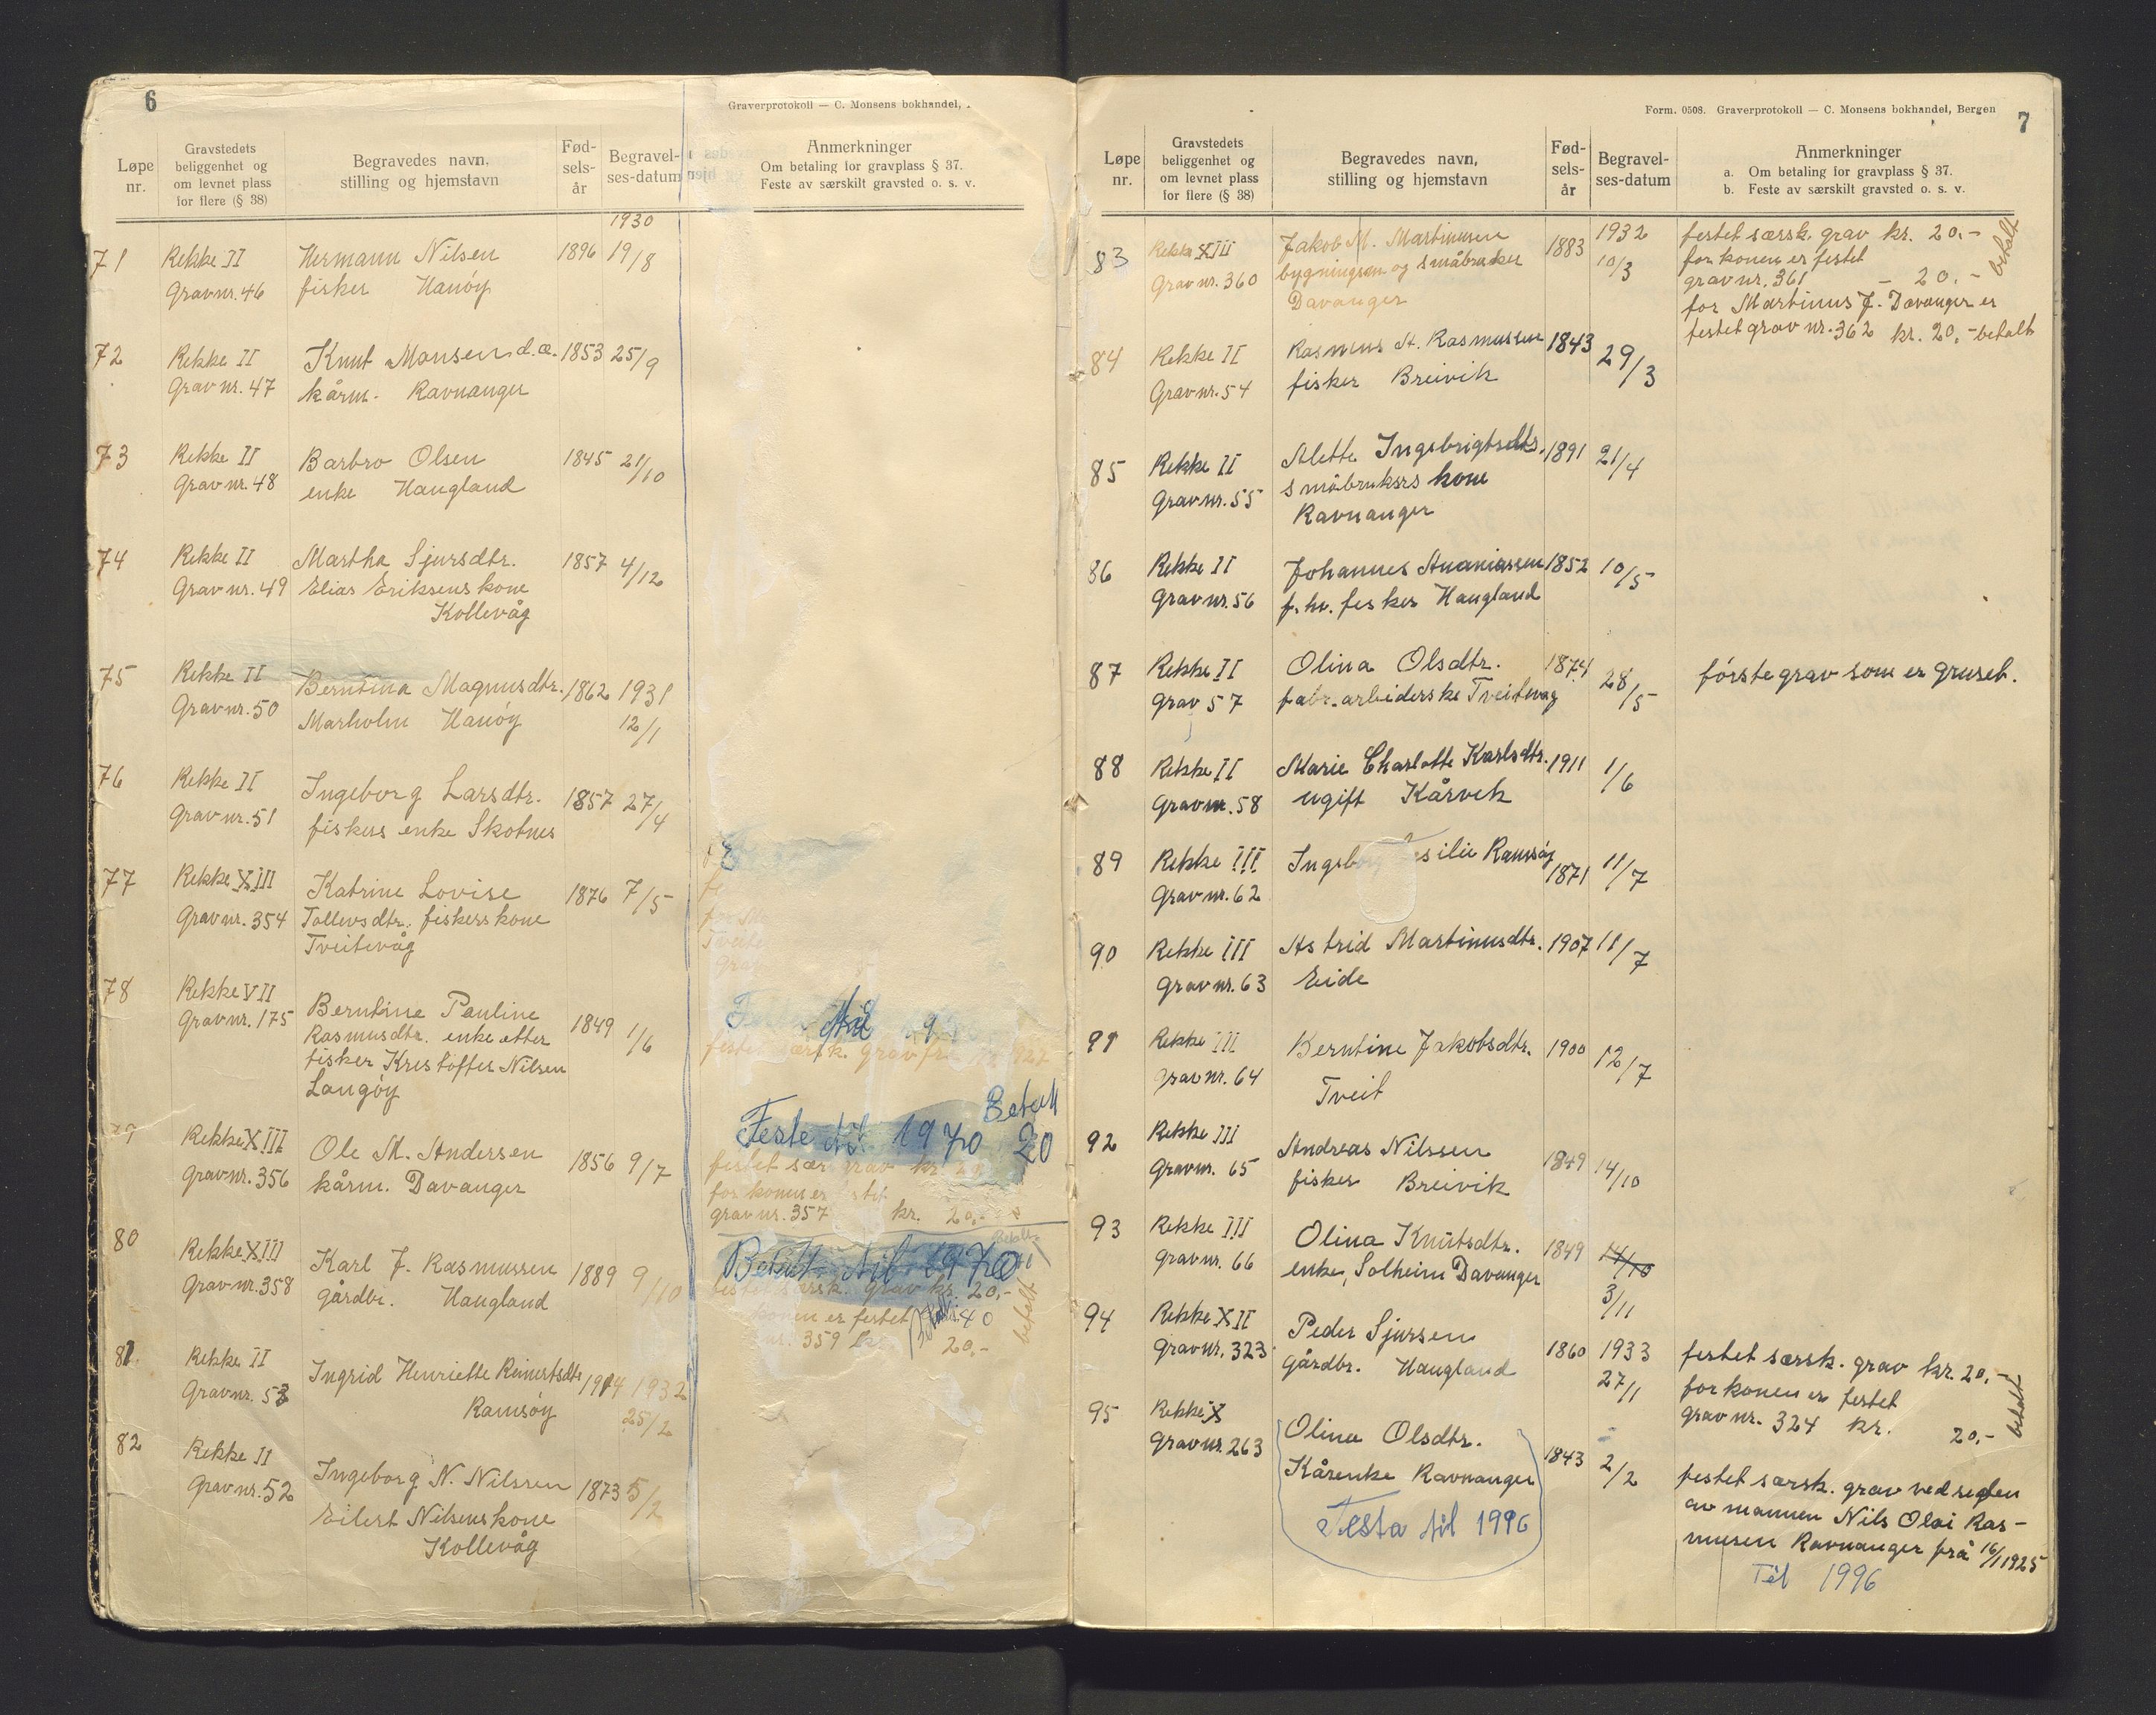 6
Graverprotokoll — C. Monsens bokhandel, .
Løpe nr.
Gravstedets beliggenhet og om levnet plass for flere (§ 38)
Begravedes navn, stilling og hjemstavn
Fød-sels-år
Begravel-ses-datum
Anmerkninger
Om betaling for gravplass § 37.
Feste av særskilt gravsted o. s. v.
1930
71 Rekke II Hermann Nilsen 1896 19/8
Gravnr. 46 fisker Hanøy
72 Rekke II Knut Monsen d.æ. 1853 25/9
Gravnr. 47 kårm. Ravnanger
73 Rekke II Barbro Olsen 1845 21/10
Gravnr. 48 enke Haugland
74 Rekke II Martha Sjursdtr. 1857 4/12
Gravnr. 49 Elias Eriksens kone
Kollevåg
75 Rekke II Berntina Magnusdtr. 1862 1931
Gravnr. 50 Marholm Hanøy 12/1
76 Rekke II Ingeborg Larsdtr. 1857 27/4
Gravnr. 51 fiskers enke Skotnes
77 Rekke XIII Katrine Lovise 1876 7/5
Gravnr. 354 Tollevsdtr. fiskers kone
Tveitevåg
78 Rekke VII Berntine Pauline 1849 1/6
Gravnr. 175 Rasmusdtr. enke etter
fisker Kristoffer Nilsen
Langøy
Rekke XIII Ole M. Andersen 1856 9/7
Gravnr. 356 kårm. Davanger
Betalt
Feste til 1970 20
festet grav kr.
for konen er
gravnr. 357 kr. 20,-
80 Rekke XIII Karl J. Rasmussen 1889 9/10
Gravnr. 358 gårdbr. Haugland
Betalt til 1970
særsk. grav kr. 20,-
konen er festet Betalt 40
359 20,-
betalt
81 Rekke II Ingrid Henriette Reinertsdtr 1914 1932
Gravnr. 53 Ramsøy 25/2
82 Rekke II Ingeborg N. Nilssen 1873 5/2
Gravnr. 52 Eilert Nilsens kone
Kollevåg
Form. 0508. Graverprotokoll — C. Monsens bokhandel, Bergen
7
Løpe nr.
Gravstedets beliggenhet og om levnet plass for flere (§ 38)
Begravedes navn, stilling og hjemstavn
Fød-sels-år
Begravel-ses-datum
Anmerkninger
a. Om betaling for gravplass § 37.
b. Feste av særskilt gravsted o. s. v.
83 Rekke XIII Jakob M. Martinusen 1883 1932 festet særsk. grav kr. 20.-
Gravnr. 360 bygningsm og småbruker 10/3 for konen er festet
Davanger gravnr. 361 - 20.- betalt
for Martinus J. Davanger er
festet grav nr. 362 kr. 20,- betalt
84 Rekke II Rasmus A. Rasmussen 1843 29/3
Gravnr. 54 fisker Breivik
85 Rekke II Alette Ingebrigtsdtr. 1891 21/4
Gravnr. 55 småbrukers kone
Ravnanger
86 Rekke II Johannes Ananiassen 1852 10/5
Gravnr. 56 f.hv. fisker Haugland
87 Rekke II Olina Olsdtr. 1874 28/5 første grav som er gruset.
Grav 57 fabr.arbeiderske Tveitevåg
88 Rekke II Marie Charlotte Karlsdtr. 1911 1/6
Gravnr. 58 ugift Kårvik
89 Rekke III Ramsøy 1871 11/7
Gravnr. 62
90 Rekke III Astrid Martinusdtr. 1907 11/7
Gravnr. 63 Eide
91 Rekke III Berntine Jakobsdtr. 1900 12/7
Gravnr. 64 Tveit
92 Rekke III Andreas Nilssen 1849 14/10
Gravnr. 65 fisker Breivik
93 Rekke III Olina Knutsdtr. 1849 14/10
Gravnr. 66 enke, Solheim Davanger 3/11
94 Rekke XII Peder Sjursen 1860 1933 festet særsk. grav kr. 20,-
Gravnr. 323 gårdbr. Haugland 27/1 for konen er festet
grav nr. 324 kr. 20,- betalt
95 Rekke X Olina Olsdtr. 1843 2/2 festet særsk. grav ved siden
Gravnr. 263 Kårenke Ravnanger av mannen Nils Olai Ras-
Festa til 1996 musen Ravnanger frå 16/1 1925
Til 1996